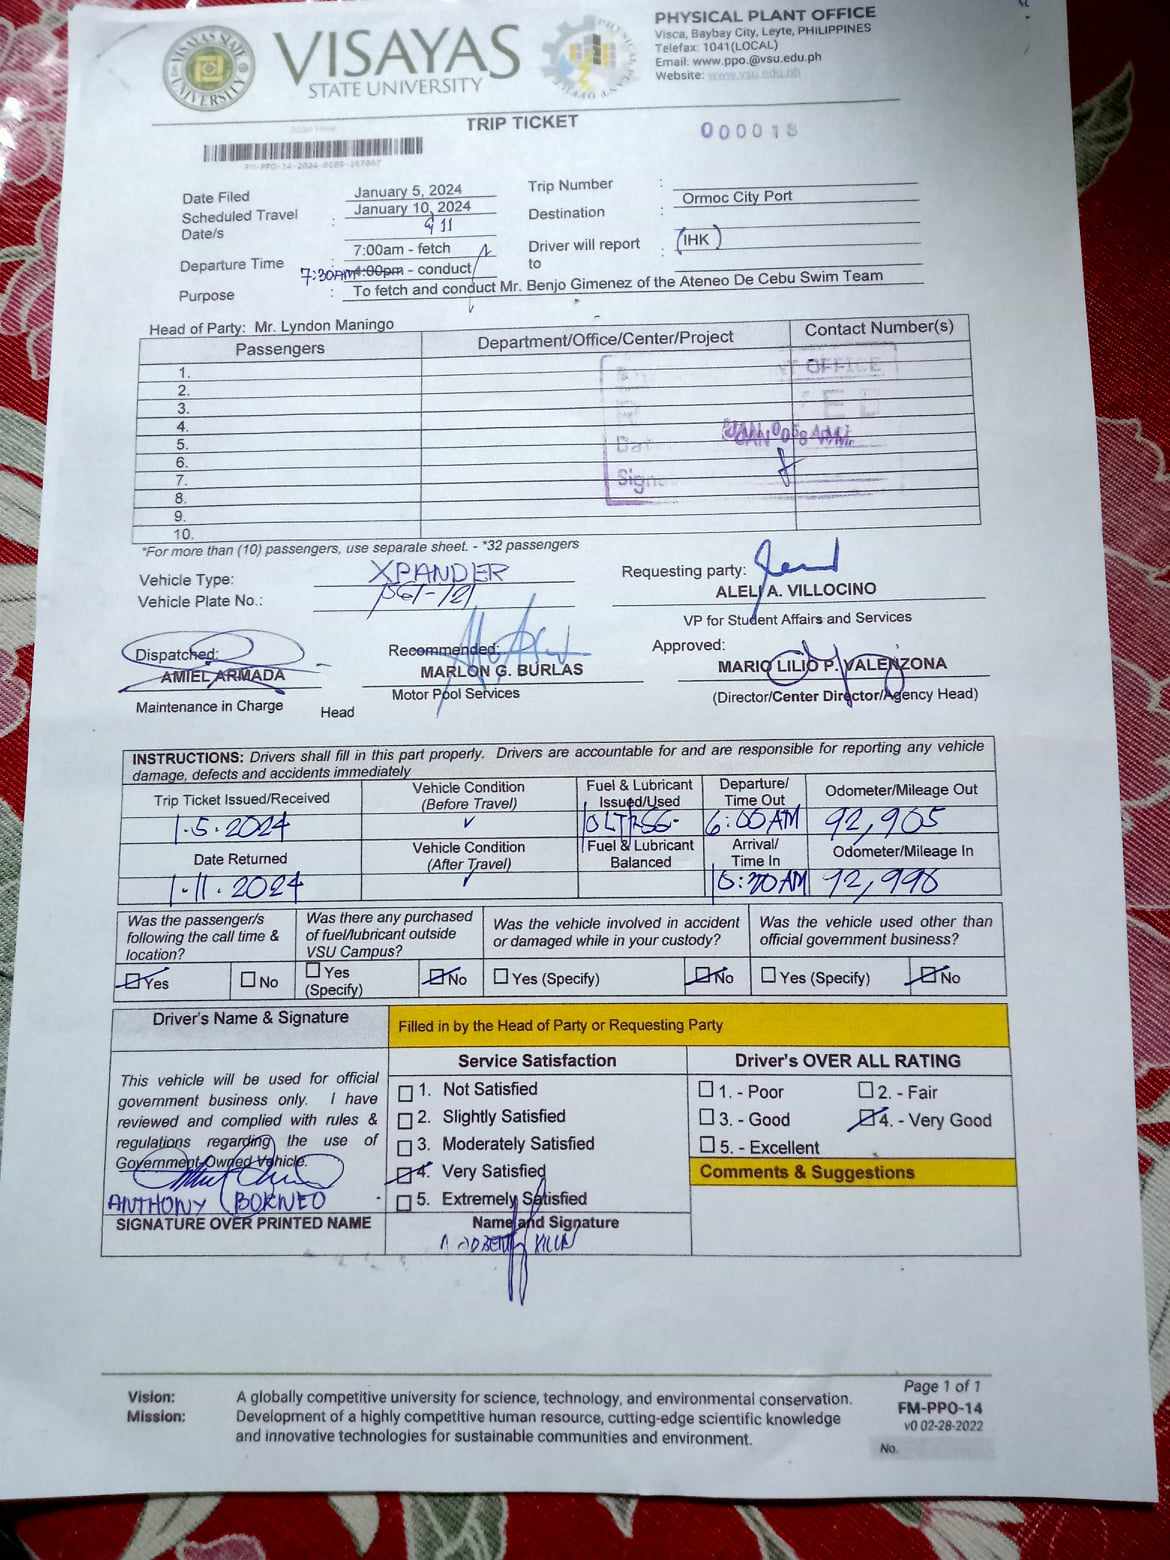 VISAYAS STATE UNIVERSITY
VISAYAS
STATE UNIVERSITY
PHYSICAL PLANT OFFICE
Visca, Baybay City, Leyte, PHILIPPINES
Telefax: 1041(LOCAL)
Email: www.ppo.@vsu.edu.ph
Website: www.vsu.edu.ph
TRIP TICKET
000018
Date Filed
January 5, 2024
Trip Number :
Scheduled Travel Date/s :
January 10, 2024
& 11
Destination :
Ormoc City Port
Departure Time :
7:00am - fetch
7:30AM 4:00pm - conduct
Driver will report to :
(IHK)
Purpose :
To fetch and conduct Mr. Benjo Gimenez of the Ateneo De Cebu Swim Team
Head of Party: Mr. Lyndon Maningo
Passengers
Department/Office/Center/Project
Contact Number(s)
1.
2.
3.
4.
5.
6.
7.
8.
9.
10.
OFFICE
*For more than (10) passengers, use separate sheet. - *32 passengers
Vehicle Type:
XPANDER
Vehicle Plate No.:
Requesting party:
ALELI A. VILLOCINO
VP for Student Affairs and Services
Dispatched:
AMIEL ARMADA
Maintenance in Charge
Recommended:
MARLON G. BURLAS
Head
Motor Pool Services
Approved:
MARIO LILIO P. VALENZONA
(Director/Center Director/Agency Head)
INSTRUCTIONS: Drivers shall fill in this part properly. Drivers are accountable for and are responsible for reporting any vehicle
damage, defects and accidents immediately
Trip Ticket Issued/Received
Vehicle Condition
(Before Travel)
Fuel & Lubricant
Issued/Used
Departure/
Time Out
Odometer/Mileage Out
1.5.2024
✓
6:00AM
92,905
Date Returned
Vehicle Condition
(After Travel)
Fuel & Lubricant
Balanced
Arrival/
Time In
Odometer/Mileage In
1.11.2024
✓
Was the passenger/s
following the call time &
location?
Was there any purchased
of fuel/lubricant outside
VSU Campus?
Was the vehicle involved in accident
or damaged while in your custody?
Was the vehicle used other than
official government business?
Yes
No
Yes
(Specify)
No
Yes (Specify)
No
Yes (Specify)
No
Driver's Name & Signature
Filled in by the Head of Party or Requesting Party
Service Satisfaction
Driver's OVER ALL RATING
This vehicle will be used for official
government business only. I have
reviewed and complied with rules &
regulations regarding the use of
Government Owned Vehicle.
ANTHONY BORNEO
SIGNATURE OVER PRINTED NAME
1. Not Satisfied
2. Slightly Satisfied
3. Moderately Satisfied
4. Very Satisfied
5. Extremely Satisfied
Name and Signature
1. - Poor
2. - Fair
3. - Good
4. - Very Good
5. - Excellent
Comments & Suggestions
Vision:
A globally competitive university for science, technology, and environmental conservation.
Mission:
Development of a highly competitive human resource, cutting-edge scientific knowledge
and innovative technologies for sustainable communities and environment.
Page 1 of 1
FM-PPO-14
v0 02-28-2022
No.